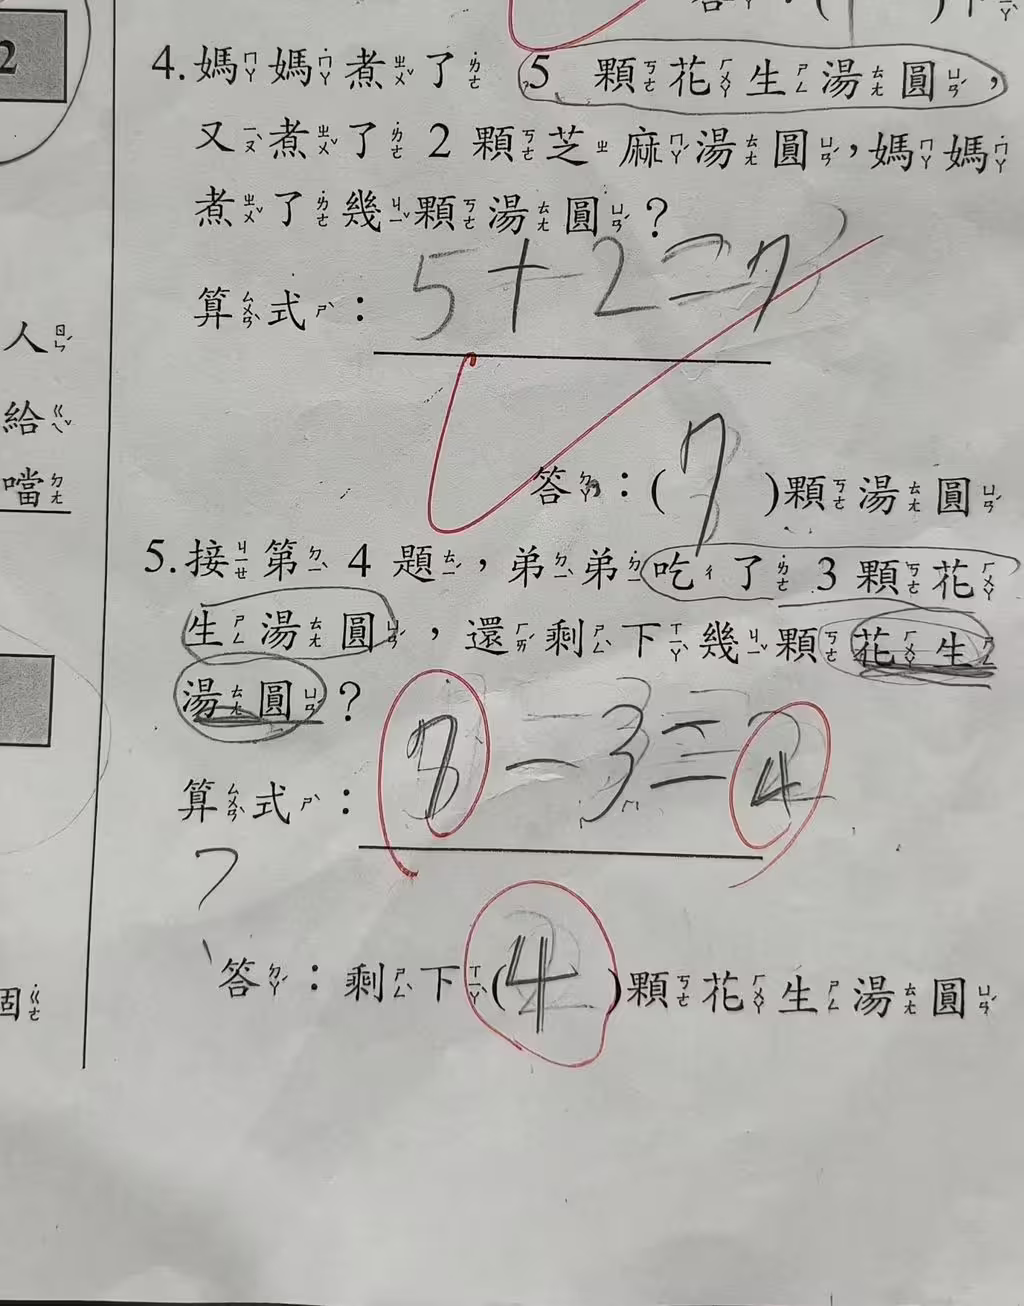 2
人ㄖㄣˊ
給ㄍㄟˇ
噹ㄉㄤ
個ㄍㄜ˙
4.媽ㄇㄚ媽ㄇㄚ˙煮ㄓㄨˇ了ㄌㄜ˙ 5 顆ㄎㄜ花ㄏㄨㄚ生ㄕㄥ湯ㄊㄤ圓ㄩㄢˊ，
又ㄧㄡˋ煮ㄓㄨˇ了ㄌㄜ˙ 2 顆ㄎㄜ芝ㄓ麻ㄇㄚˊ湯ㄊㄤ圓ㄩㄢˊ，媽ㄇㄚ媽ㄇㄚ˙
煮ㄓㄨˇ了ㄌㄜ˙幾ㄐㄧˇ顆ㄎㄜ湯ㄊㄤ圓ㄩㄢˊ？
算ㄙㄨㄢˋ式ㄕˋ：5+2=7
答ㄉㄚˊ：(7)顆ㄎㄜ湯ㄊㄤ圓ㄩㄢˊ
5.接ㄐㄧㄝ第ㄉㄧˋ 4 題ㄊㄧˊ，弟ㄉㄧˋ弟ㄉㄧ˙吃ㄔ了ㄌㄜ˙ 3 顆ㄎㄜ花ㄏㄨㄚ
生ㄕㄥ湯ㄊㄤ圓ㄩㄢˊ，還ㄏㄞˊ剩ㄕㄥˋ下ㄒㄧㄚˋ幾ㄐㄧˇ顆ㄎㄜ花ㄏㄨㄚ生ㄕㄥ
湯ㄊㄤ圓ㄩㄢˊ？
算ㄙㄨㄢˋ式ㄕˋ：7-3=4
7
答ㄉㄚˊ：剩ㄕㄥˋ下ㄒㄧㄚˋ(4)顆ㄎㄜ花ㄏㄨㄚ生ㄕㄥ湯ㄊㄤ圓ㄩㄢˊ